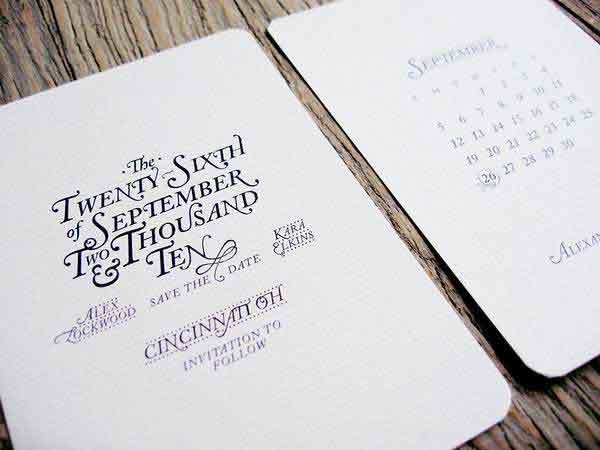 The
Twenty-Sixth
of September
Two Thousand
& Ten
Alex Lockwood
SAVE THE DATE
Kara Elkins
CINCINNATI OH
INVITATION TO
FOLLOW
September
S M T W T F S
1 2 3 4
5 6 7 8 9 10 11
12 13 14 15 16 17 18
19 20 21 22 23 24 25
26 27 28 29 30
Alexan